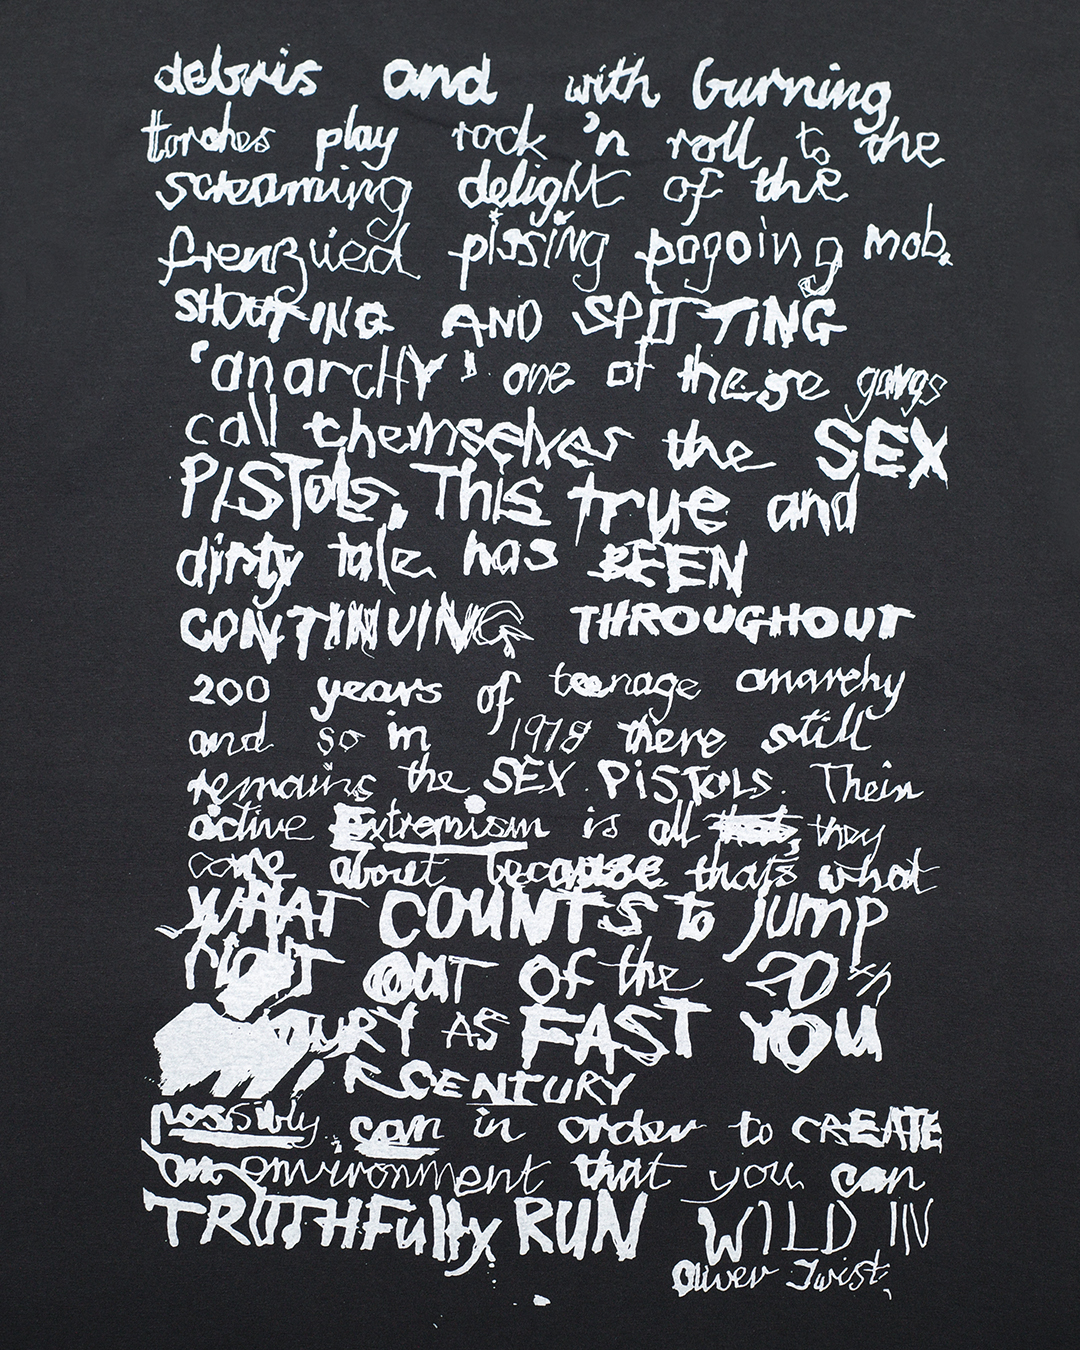 debris and with burning
torches play rock 'n roll to the
screaming delight of the
frenzied pissing pogoing mob.
SHOUTING AND SPITTING
'anarchy' one of these gangs
call themselves the SEX
PISTols, This true and
dirty tale has BEEN
CONTINUING THROUGHOUT
200 years of teenage anarchy
and so in 1978 there still
remains the SEX PISTOLS. Their
active Extremism is all that, they
care about because thats what
WHAT COUNTS to jump
RIGHT OUT of the 20th
AS FAST YOU
CENTURY
possibly can in order to CREATE
an environment that you can
TRUTHFully RUN WILD IN
Oliver Twist.